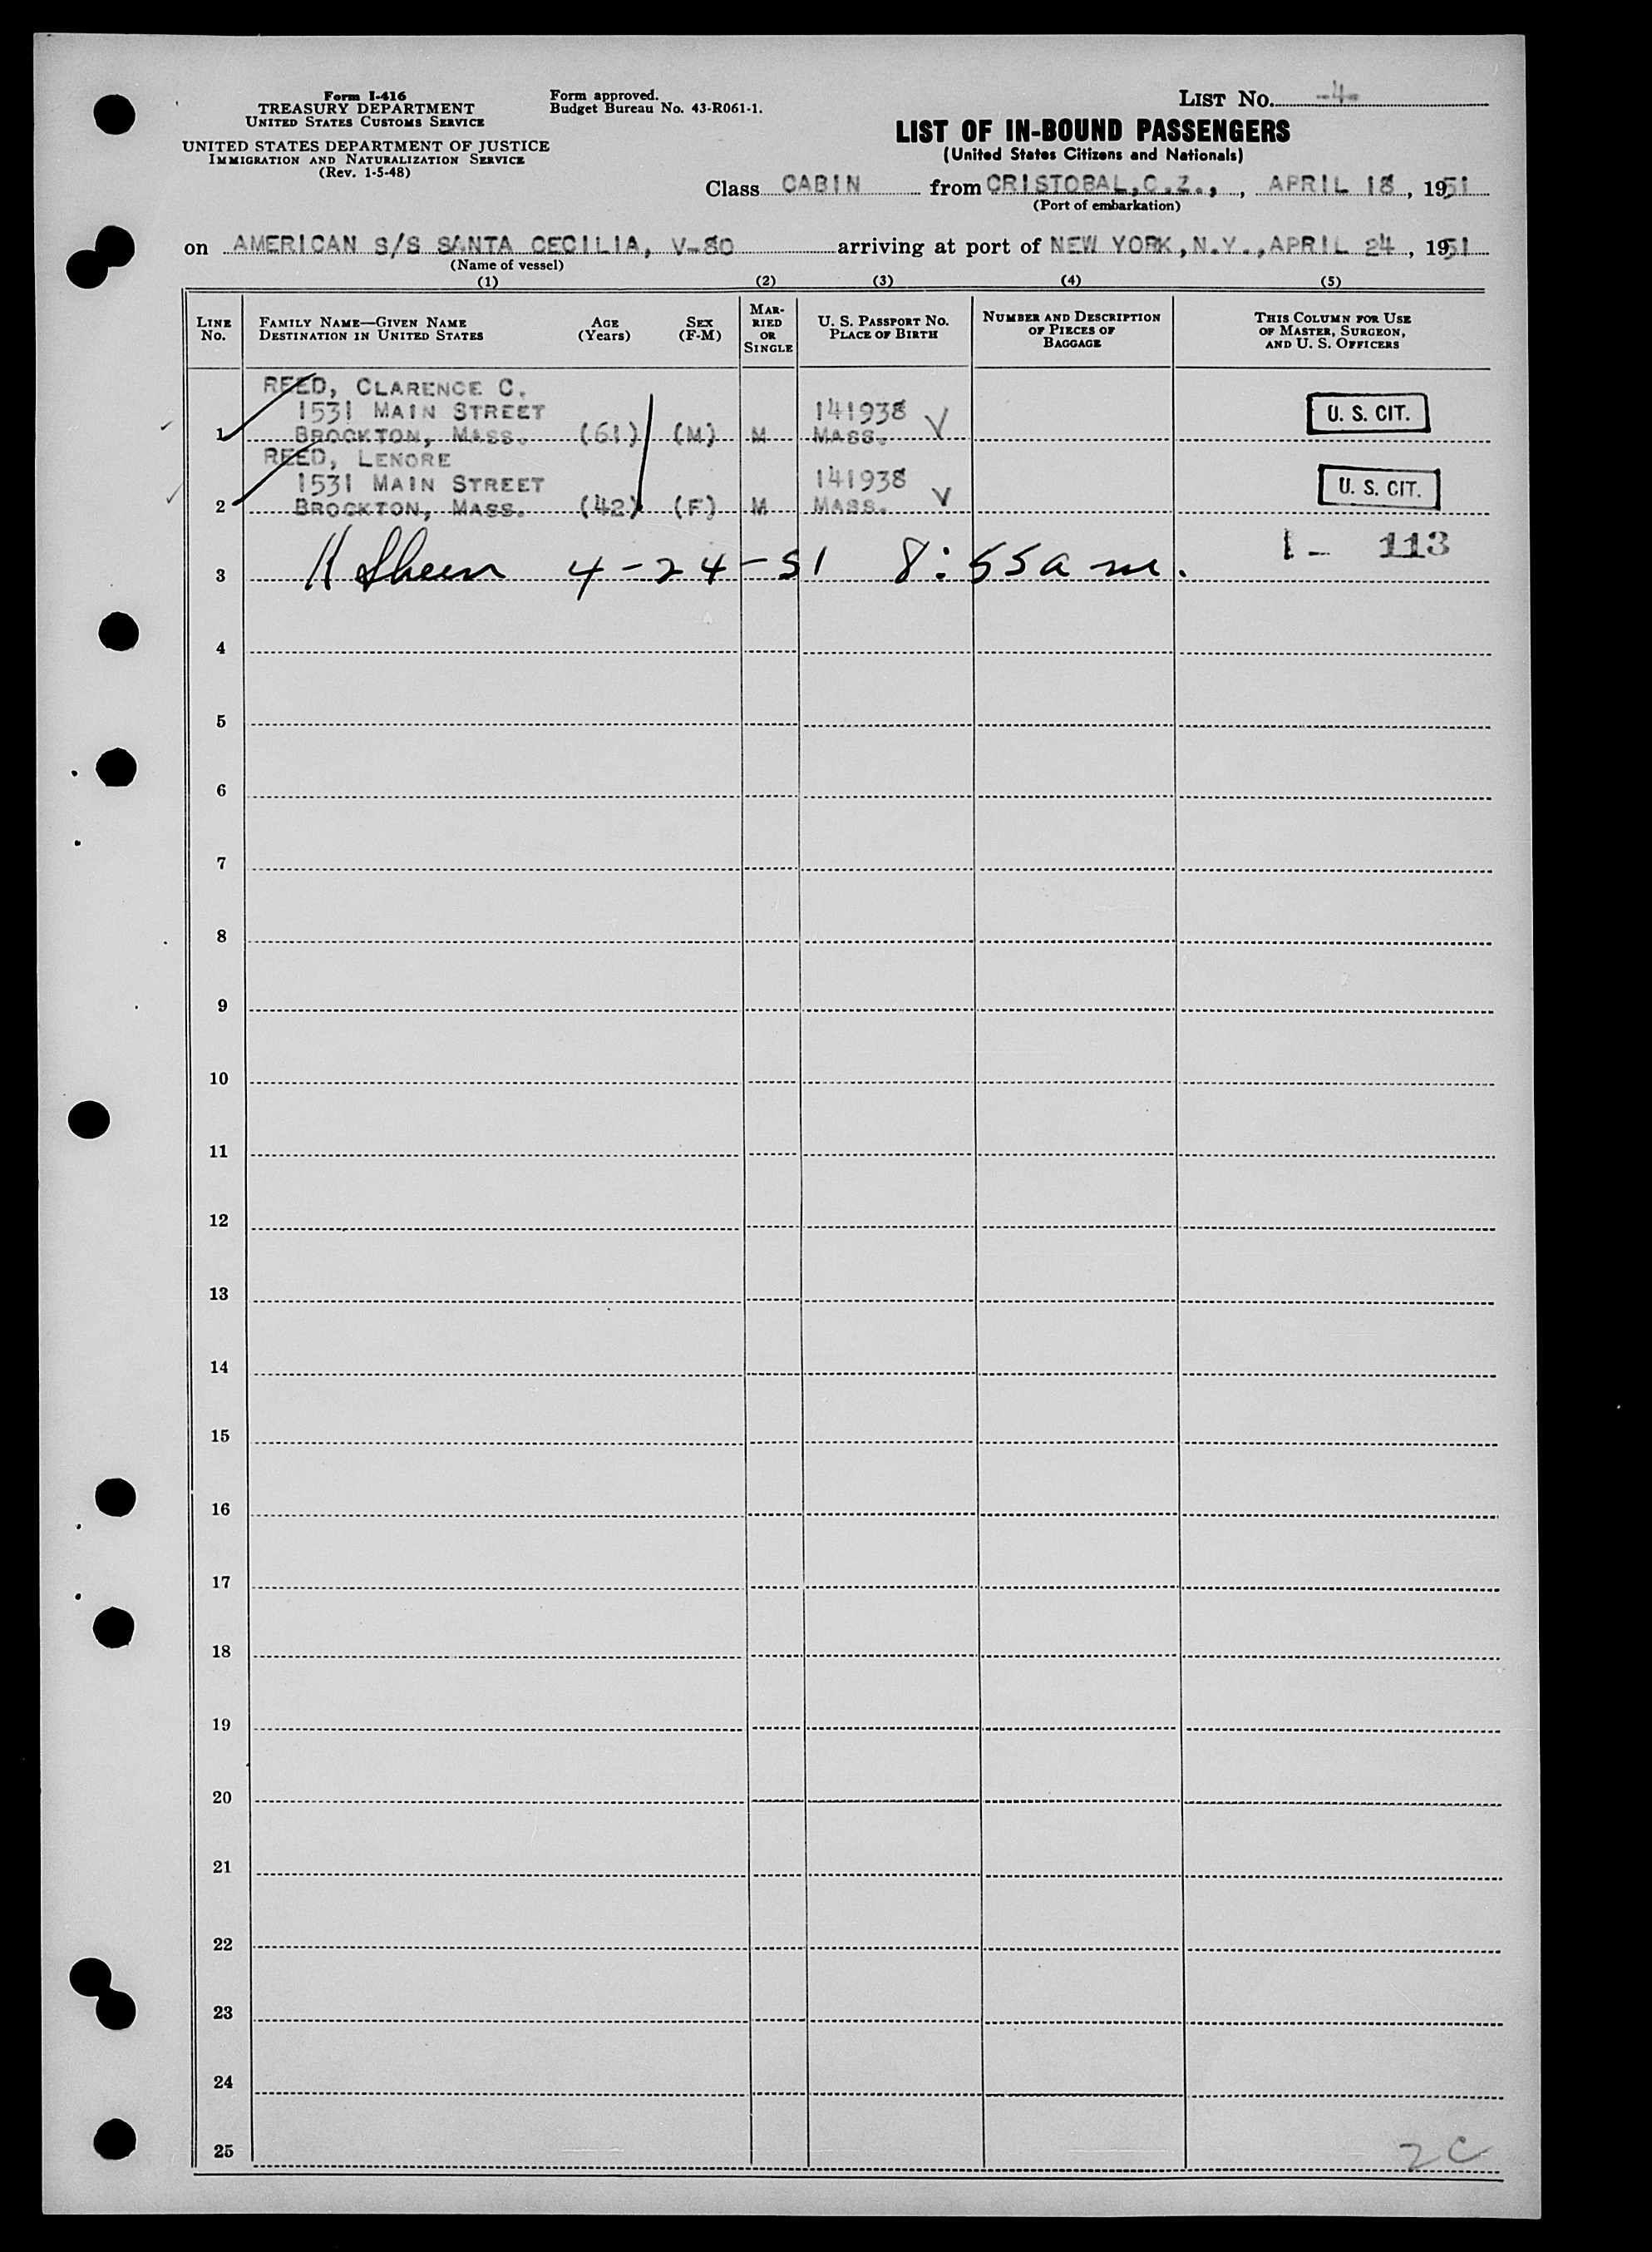 Form I-416
TREASURY DEPARTMENT
UNITED STATES CUSTOMS SERVICE
UNITED STATES DEPARTMENT OF JUSTICE
IMMIGRATION AND NATURALIZATION SERVICE
(Rev. 1-5-48)
Form approved.
Budget Bureau No. 43-R061-1.
LIST NO. -4-
LIST OF IN-BOUND PASSENGERS
(United States Citizens and Nationals)
Class CABIN from CRISTOBAL, C.Z., , APRIL 18, 1951
(Port of embarkation)
on AMERICAN S/S SANTA CECILIA, V-80 arriving at port of NEW YORK, N.Y., APRIL 24, 1951
(Name of vessel)
(1) (2) (3) (4) (5)
LINE NO.
FAMILY NAME—GIVEN NAME
DESTINATION IN UNITED STATES
AGE (Years)
SEX (F-M)
MARRIED OR SINGLE
U. S. PASSPORT NO.
PLACE OF BIRTH
NUMBER AND DESCRIPTION OF PIECES OF BAGGAGE
THIS COLUMN FOR USE OF MASTER, SURGEON, AND U. S. OFFICERS
REED, CLARENCE C.
1531 MAIN STREET 141938 V U. S. CIT.
1 BROCKTON, MASS. (61) (M) M MASS.
REED, LENORE
1531 MAIN STREET 141938 V U. S. CIT.
2 BROCKTON, MASS. (42) (F) M MASS.
1 - 113
3 H Sheen 4-24-51 8:55 a m.
4
5
6
7
8
9
10
11
12
13
14
15
16
17
18
19
20
21
22
23
24
25 2C